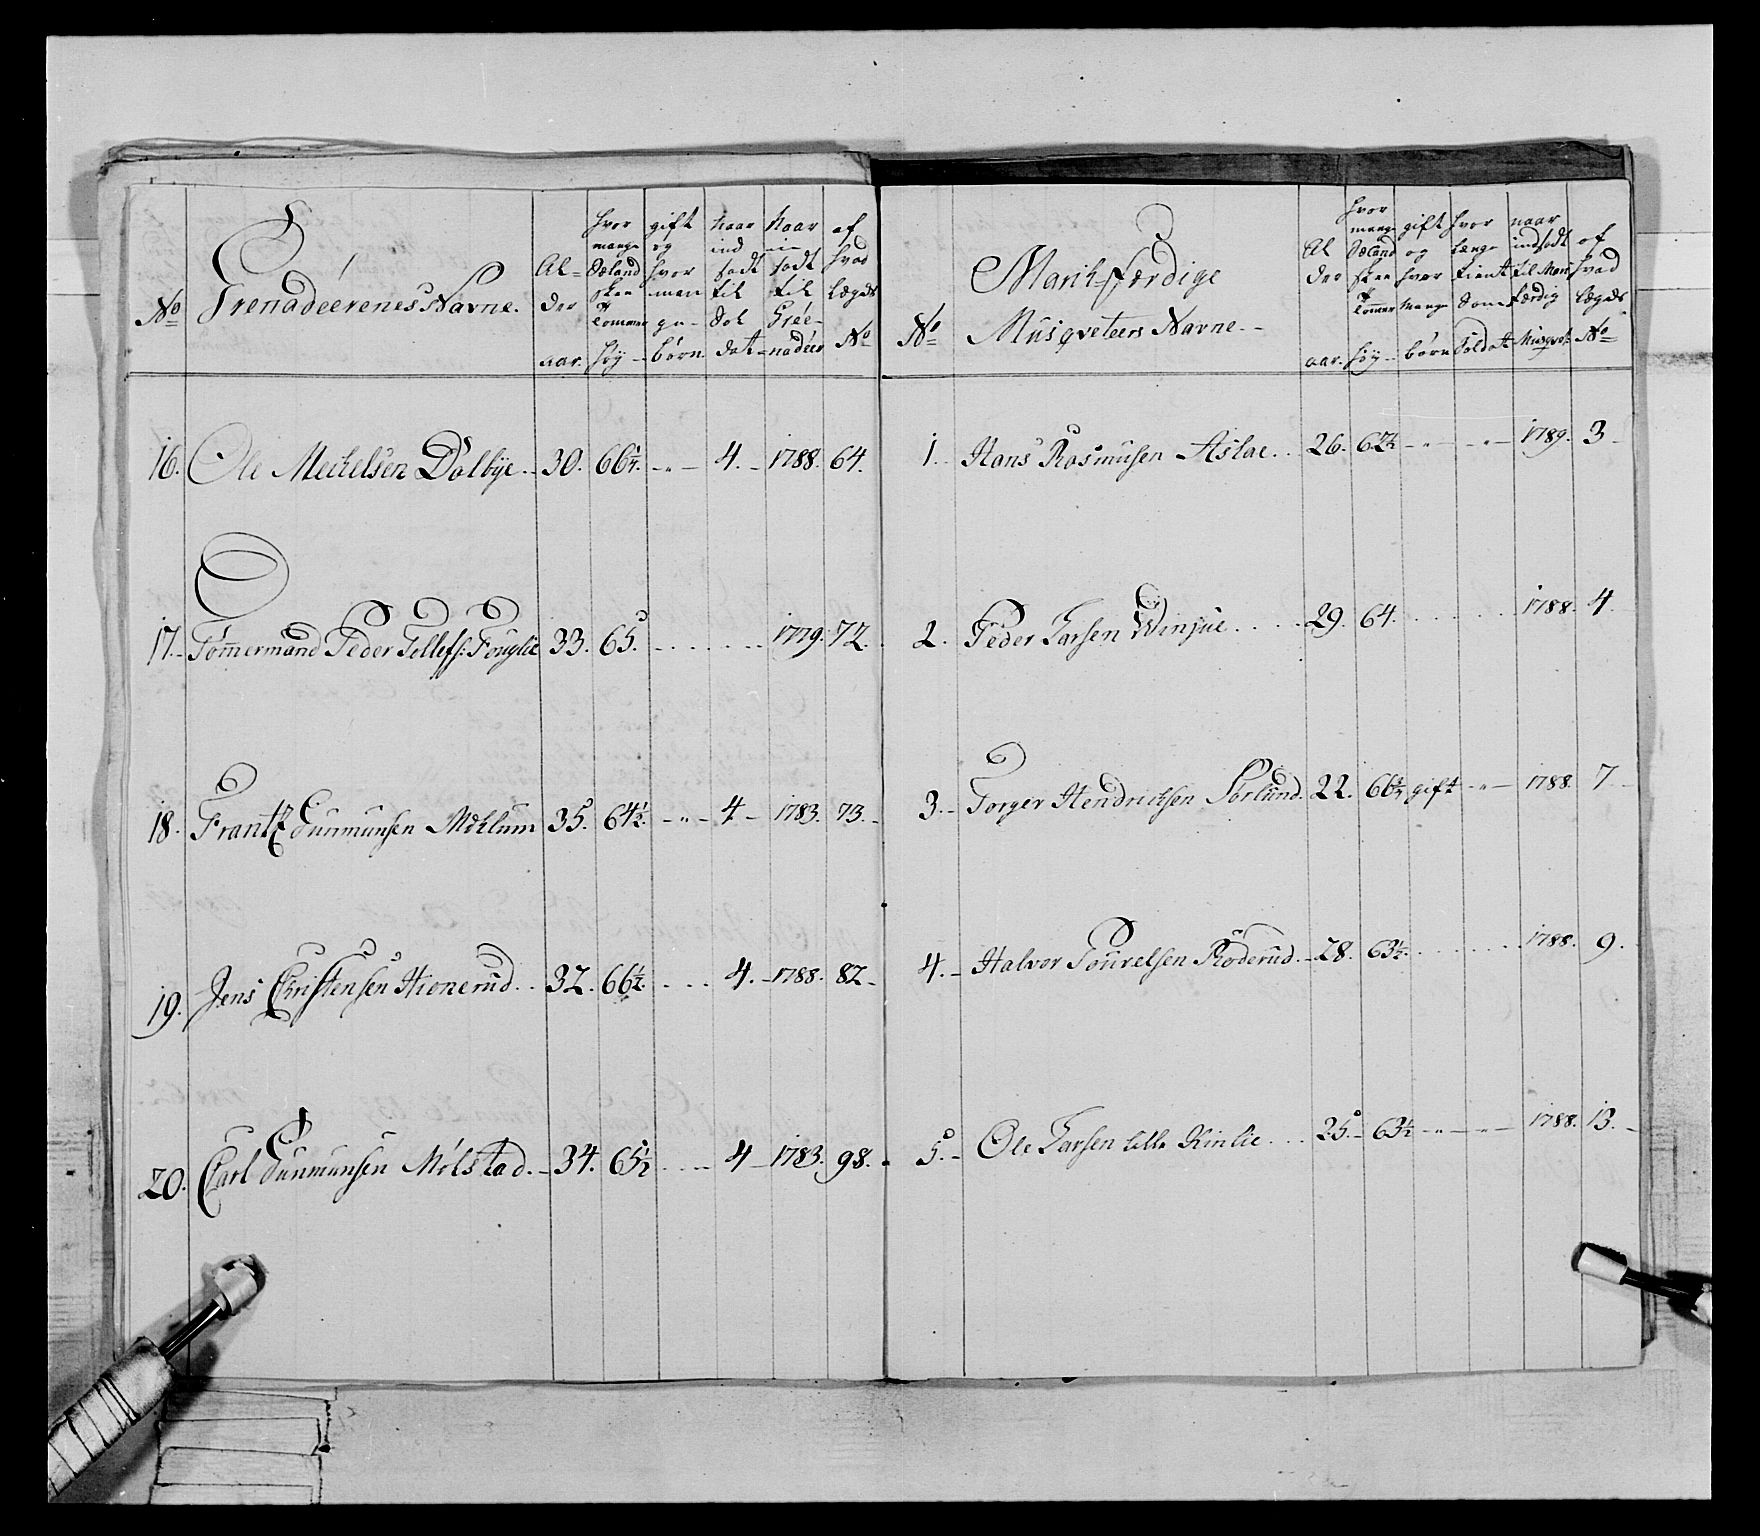 No
Grenadeerenes Navne.
Al-
der
aar.
hvor
mange
Sæland
ske
Tommer
høy
gift
og
hvor
man
ge
børn
naar
ind
sadt
til
Sol
dat
naar
in
sadt
til
Gree-
nadeer
af
hvad
lægds
No
16. Ole Meckelsen Dalbye. 30. 66 1/4. - " - 4. 1788. 64.
17. Tømmermand Peder Tollefs: Fouglie 33. 65. 1779. 72.
18. Frantz Gunmunsen Mæhlum 35. 64 1/2. - " - 4 - 1783. 73.
19. Jens Christensen Hionerud. 32. 66 1/2. 4. 1788. 82.
20. Carl Gunmunsen Mølstad. 34. 65 1/2 4 - 1783. 98.
No
March-færdige
Musqveteers Navne.
Al
der
aar.
hvor
mange
Sæland
ske
Tommer
høy
gift
og
hvor
mange
børn
hvor
længe
tient
som
Soldat
naar
indsadt
til Mars
færdig
Musqvet:
af
hvad
lægds
No
1. Hans Rasmusen Aslae. 26. 62 1/2 - " - - " - 1789. 3
2. Peder Larsen Winjue. 29. 64. 1788. 4.
3. Torger Hendricksen Sørlund. 22. 66 3/4 gift - " - 1788. 7
4. Halver Pourelsen Roderud. 28. 63 1/2. 1788. 9.
5. Ole Larsen lille Kinlie. 25. 63 1/2 - " - - " - 1788. 13.